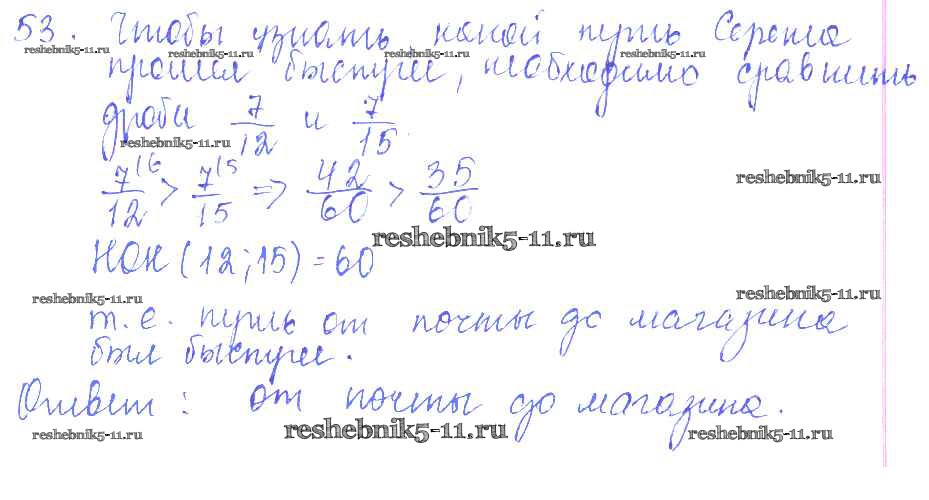 53. Чтобы узнать какой путь Сережа
reshebnik5-11.ru reshebnik5-11.ru reshebnik5-11.ru reshebnik5-11.ru
прошел быстрее, необходимо сравнить
дроби 7/12 и 7/15.
reshebnik5-11.ru
7(6/12 > 7(5/15 => 42/60 > 35/60
reshebnik5-11.ru
reshebnik5-11.ru
НОК (12;15) = 60
reshebnik5-11.ru reshebnik5-11.ru
т.е. путь от почты до магазина
был быстрее.
Ответ: от почты до магазина.
reshebnik5-11.ru reshebnik5-11.ru reshebnik5-11.ru